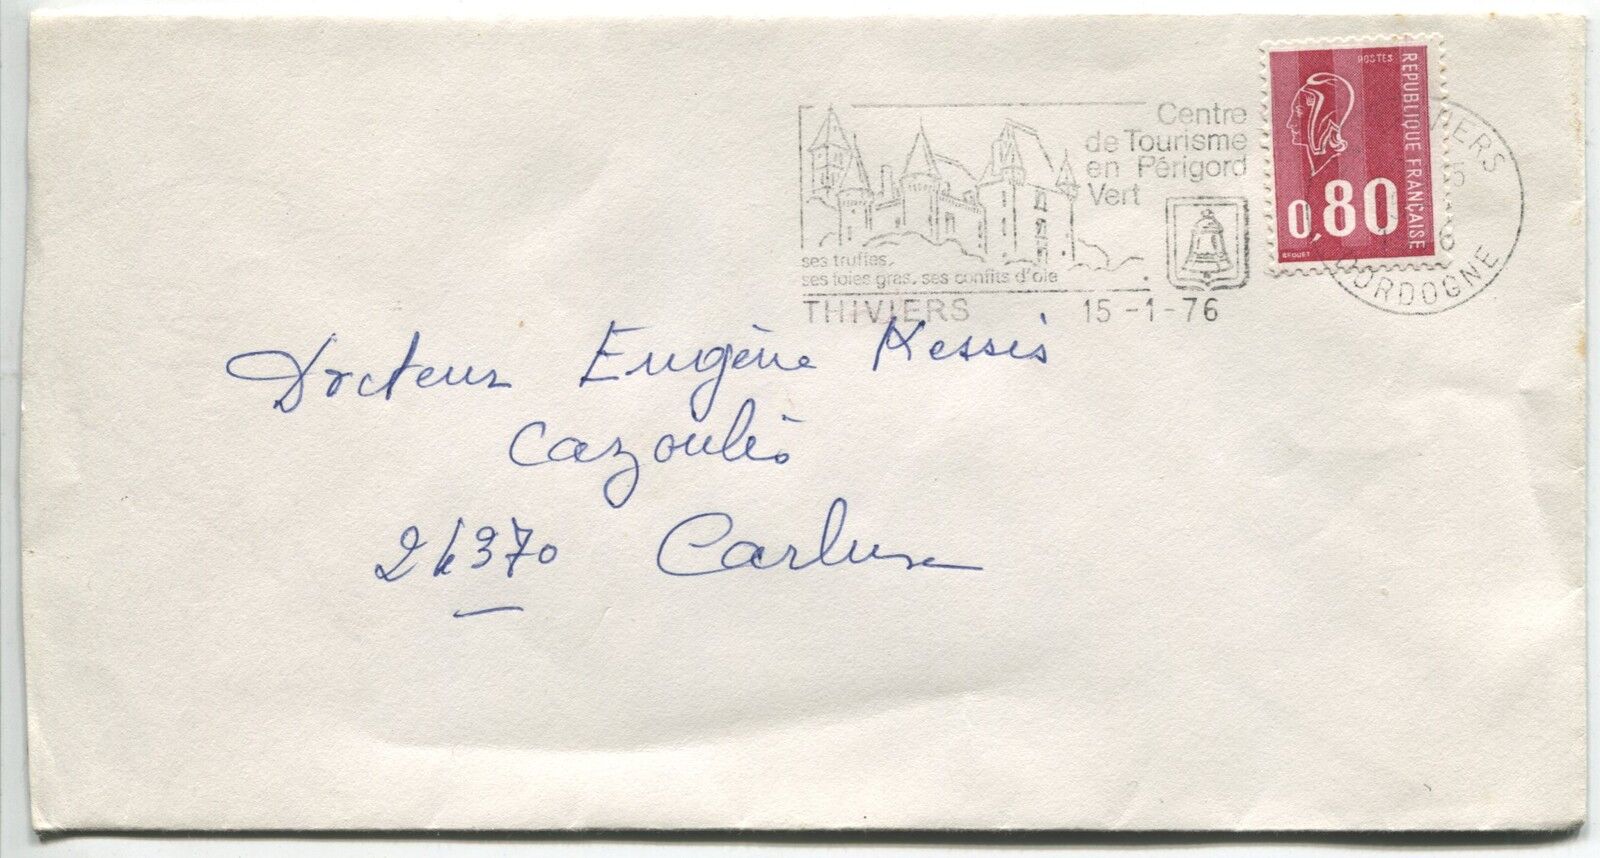 Centre
de Tourisme
en Périgord
Vert
ses truffes,
ses foies gras, ses confits d'oie
THIVIERS 15-1-76
POSTES
REPUBLIQUE FRANÇAISE
0,80
BEQUET
IERS
DORDOGNE
Docteur Eugène Kessis
Cazoulès
24370 Carlux